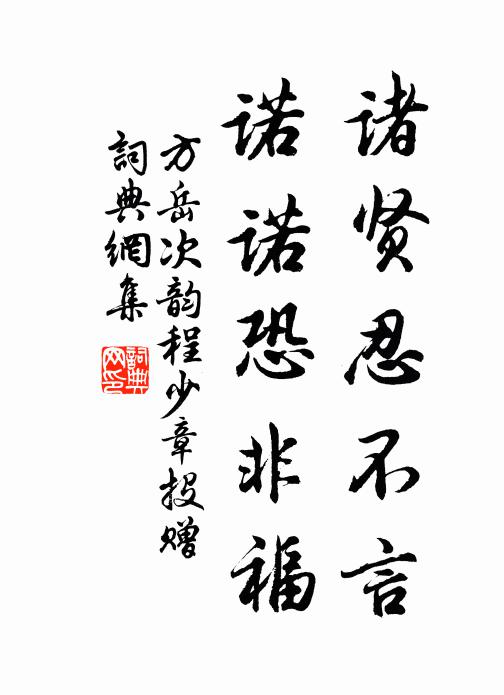 诸贤忍不言
诺诺恐非福
方岳次韵程少章投赠
詞典網集
詞典网印